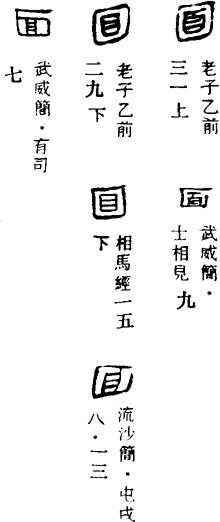 面
老子乙前
三一上
面
武威簡·
士相見九
面
老子乙前
二九下
面
相馬經一五
下
面
流沙簡·屯戍
八·一三
面
武威簡·有司
七